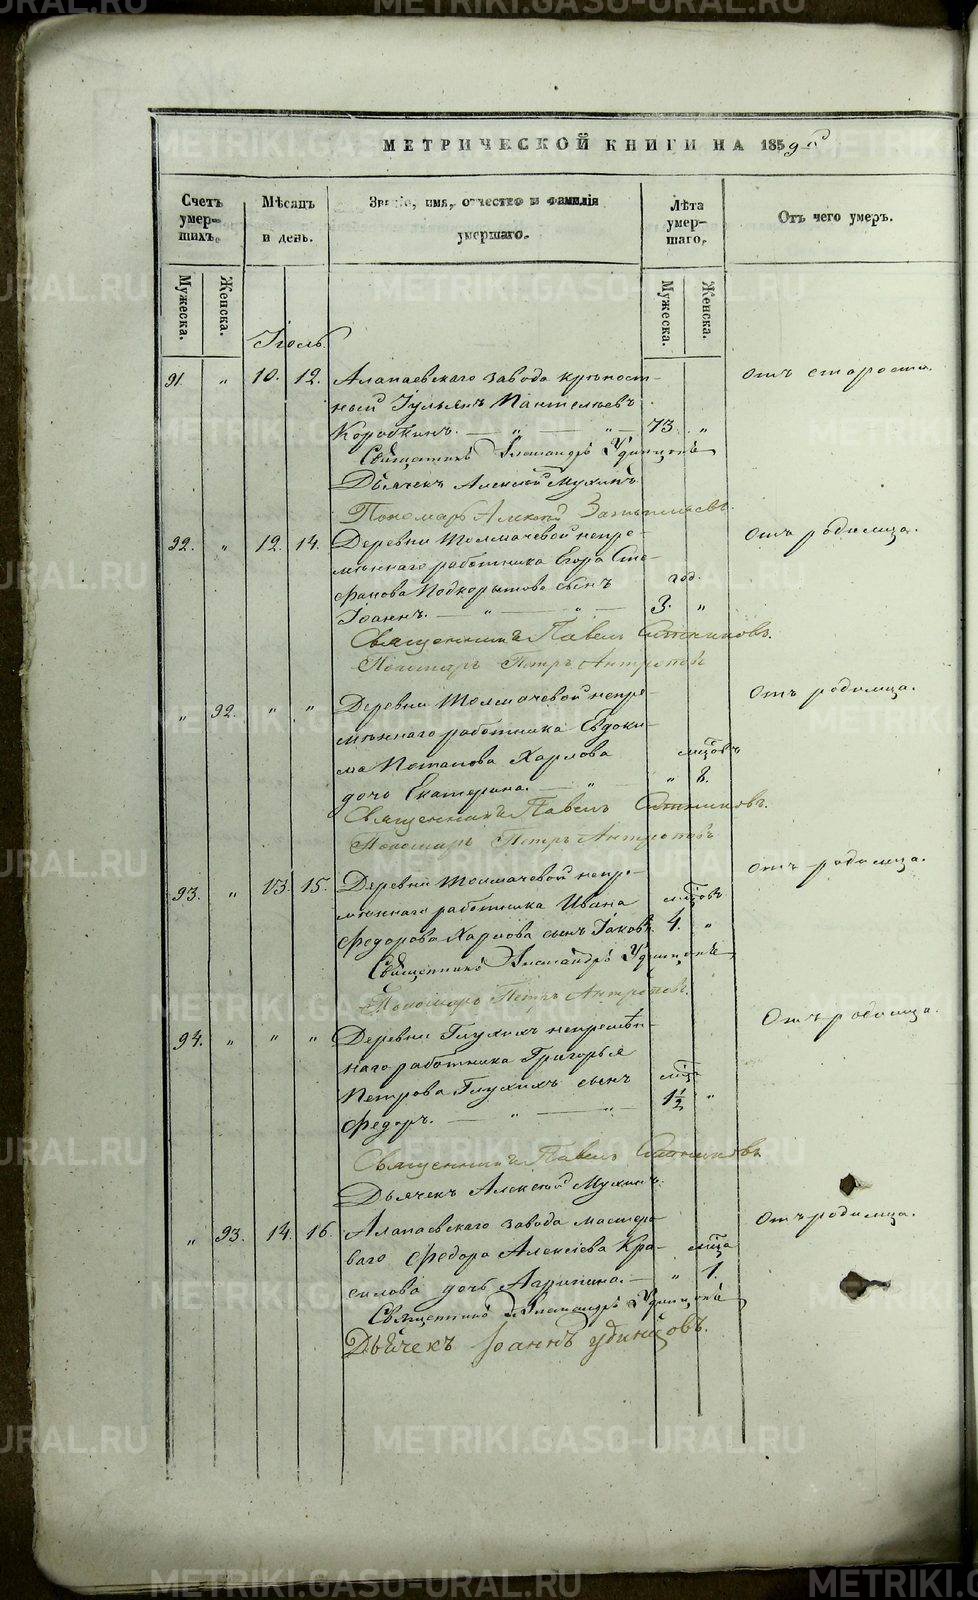 METRIKI.GASO-URAL.RU
МЕТРИЧЕСКОЙ КНИГИ НА 1859й
Счетъ умершихъ.
Мѣсяцъ и день.
Званіе, имя, отчество и фамилія умершаго.
Лѣта умершаго.
Отъ чего умеръ.
Мужеска.
Женска.
Мужеска.
Женска.
Іюль.
91. „ 10. 12. Алапаевскаго завода крѣпост- отъ старости.
ный Іульянъ Пантелѣевъ
Коробкинъ. — „ — „ — 73. „
Священникъ Александръ Удинцовъ
Дьячекъ Алексѣй Мухинъ
Пономарь Алексѣй
92. „ 12. 14. Деревни Толмачевой непре- отъ родимца.
мѣннаго работника Егора Сте-
фанова Подкорытова сынъ год.
Іоаннъ. — „ — „ — 3. „
Священникъ Павелъ Сапожниковъ.
Пономарь Петръ Антроповъ
„ 92. „ „ Деревни Толмачевой непре- Отъ родимца.
мѣннаго работника Евдоки-
ма Потапова Харлова мѣсяцовъ
дочь Екатерина. — „ — „ 8.
Священникъ Павелъ
Пономарь Петръ Антроповъ
93. „ 13. 15. Деревни Толмачевой непре- отъ родимца.
мѣннаго работника Ивана мѣсяцовъ
Федорова Харлова сынъ Іаковъ. 4. „
Священникъ Александръ Удинцовъ
Пономарь Петръ Антроповъ.
94. „ „ „ Деревни Глухихъ непремѣн- Отъ родимца.
наго работника Григорья
Петрова Глухихъ сынъ мѣсяц
Федоръ. — „ — „ — 1½ „
Священникъ Павелъ
Дьячекъ Алексѣй Мухинъ.
„ 93. 14. 16. Алапаевскаго завода мастеро- Отъ родимца.
ваго Федора Алексѣева Кра- мѣсяца
силова дочь Агрипина. — „ 1.
Священникъ Александръ Удинцовъ
Дьячекъ Іоаннъ Удинцовъ.